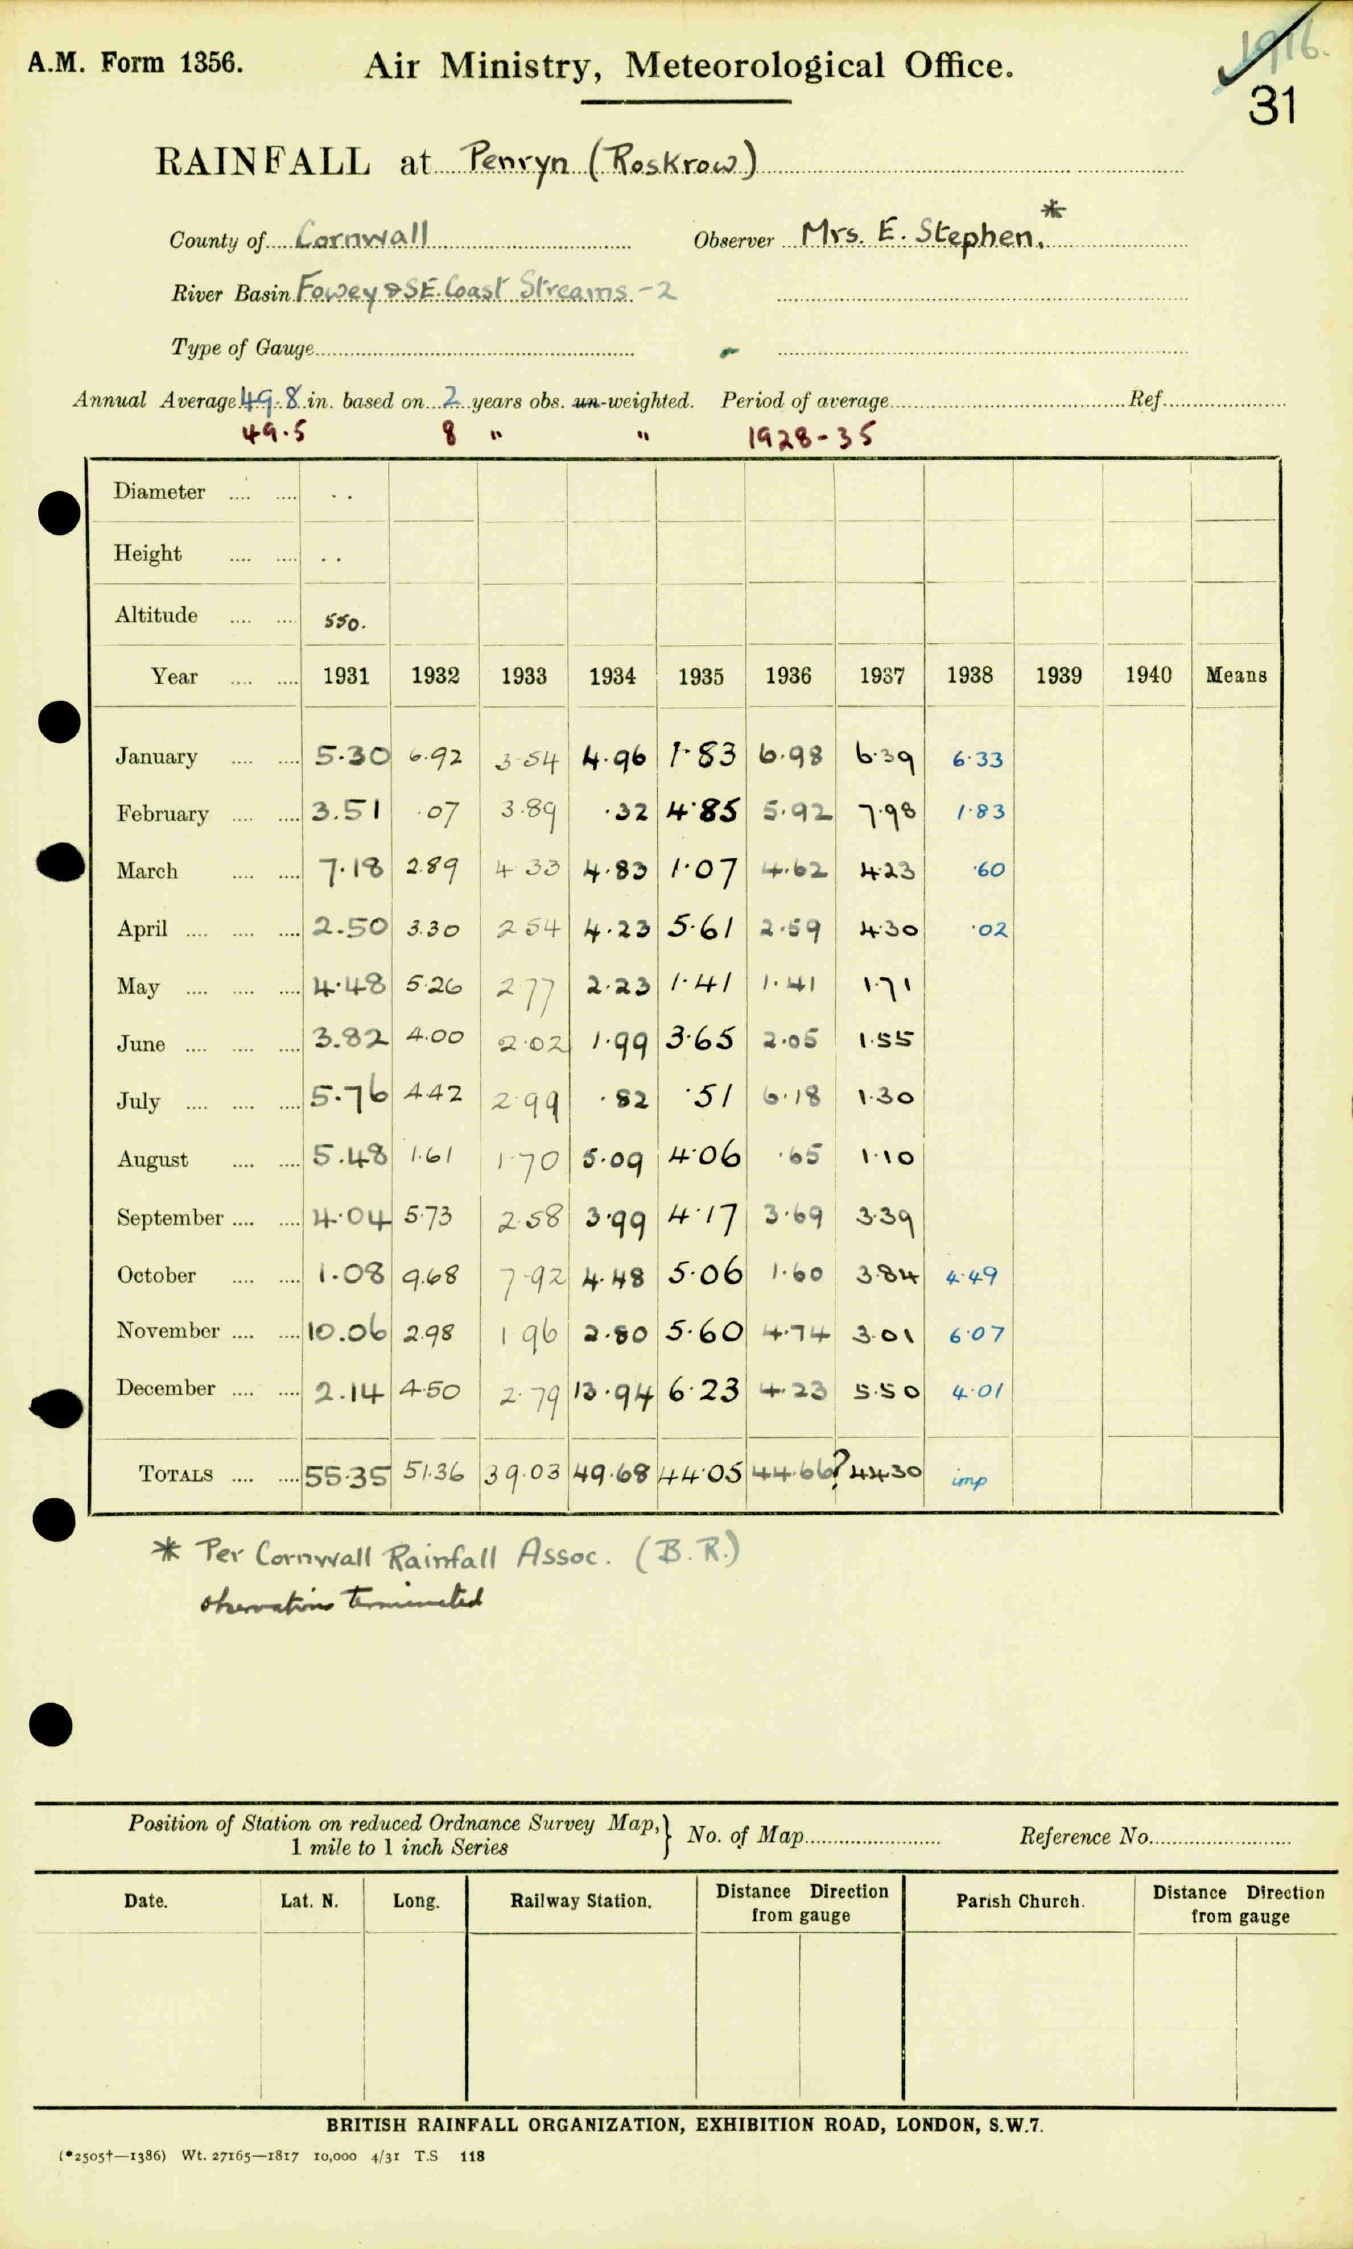 1916.
31
A.M. Form 1356. Air Ministry, Meteorological Office.
RAINFALL at Penryn (Roskrow)
County of Cornwall Observer Mrs. E. Stephen. *
River Basin Fowey & SE. Coast Streams -2
Type of Gauge
Annual Average 49.8 in. based on 2 years obs. un-weighted. Period of average Ref.
49.5 8 " " 1928-35
Diameter . .
Height . .
Altitude 550.
Year 1931 1932 1933 1934 1935 1936 1937 1938 1939 1940 Means
January 5.30 6.92 3.54 4.96 1.83 6.98 6.39 6.33
February 3.51 .07 3.89 .32 4.85 5.92 7.98 1.83
March 7.18 2.89 4.33 4.83 1.07 4.62 4.23 .60
April 2.50 3.30 2.54 4.23 5.61 2.59 4.30 .02
May 4.48 5.26 2.77 2.23 1.41 1.41 1.71
June 3.82 4.00 2.02 1.99 3.65 2.05 1.55
July 5.76 4.42 2.99 .82 .51 6.18 1.30
August 5.48 1.61 1.70 5.09 4.06 .65 1.10
September 4.04 5.73 2.58 3.99 4.17 3.69 3.39
October 1.08 9.68 7.92 4.48 5.06 1.60 3.84 4.49
November 10.06 2.98 1.96 2.80 5.60 4.74 3.01 6.07
December 2.14 4.50 2.79 13.94 6.23 4.23 5.50 4.01
TOTALS 55.35 51.36 39.03 49.68 44.05 44.66? 44.30 imp
* Per Cornwall Rainfall Assoc. (B.R.)
observations terminated
Position of Station on reduced Ordnance Survey Map, } No. of Map Reference No.
1 mile to 1 inch Series
Date. Lat. N. Long. Railway Station. Distance Direction from gauge Parish Church. Distance Direction from gauge
BRITISH RAINFALL ORGANIZATION, EXHIBITION ROAD, LONDON, S.W.7.
(*2505†—1386) Wt. 27165—1817 10,000 4/31 T.S 118